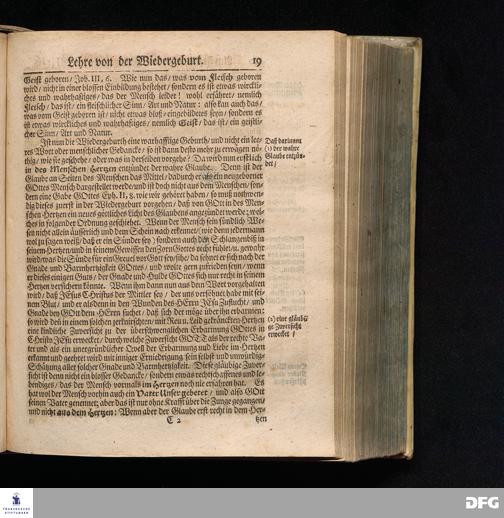 Lehre von der Wiedergeburt. 19
Geist geboren / Joh. III, 6. Wie nun das / was vom Fleisch geboren
wird / nicht in einer blossen Einbildung bestehet / sondern es ist etwas wirckli-
ches und wahrhafftiges / das der Mensch leider! wohl erfähret / nemlich
Fleisch / das ist / ein fleischlicher Sinn / Art und Natur: also kan auch das /
was vom Geist geboren ist / nicht etwas bloß / eingebildetes seyn / sondern es
ist etwas wirckliches und wahrhafftiges / nemlich Geist / das ist / ein geistli-
cher Sinn / Art und Natur.
Ist nun die Wiedergeburth eine warhafftige Geburth / und nicht ein lee-
res Wort oder menschlicher Gedancke / so ist dann desto mehr zu erwägen nö-
thig / wie sie geschehe / oder was in derselben vorgehe? Da wird nun erstlich
in des Menschen Hertzen entzündet der wahre Glaube. Denn ist der
Glaube an Seiten des Menschen das Mittel / dadurch er als ein neugeborner
GOttes Mensch dargestellet werde / und ist doch nicht aus dem Menschen / son-
dern eine Gabe GOttes Eph. II, 8. wie wir gehöret haben / so muß nothwen-
dig dieses zuerst in der Wiedergeburt vorgehen / daß von GOtt in des Men-
schen Hertzen ein neues göttliches Licht des Glaubens angezündet werde; wel-
ches in folgender Ordnung geschiehet. Wenn der Mensch sein sündlich We-
sen nicht allein äusserlich und dem Schein nach erkennet / wie denn jedermann
wol zu sagen weiß / daß er ein Sünder sey / sondern auch den Schlangenbiß in
seinem Hertzen / und in seinem Gewissen den Zorn Gottes recht fühlet / u. gewahr
wird / was die Sünde für ein Greuel vor Gott sey / sihe / da sehnet er sich nach der
Gnade und Barmhertzigkeit GOttes / und wolte gern zufrieden seyn / wenn
er dieses einigen Guts / der Gnade und Hulde GOttes sich nur recht in seinem
Hertzen versichern könnte. Wenn ihm dann nun aus dem Wort vorgehalten
wird / daß JEsus Christus der Mittler sey / der uns versöhnet habe mit sei-
nem Blut / und er alsdenn in den Wunden des HErrn JEsu Zuflucht / und
Gnade bey GOtt dem HErrn suchet / daß sich der möge über ihn erbarmen:
so wird deß in einem solchen zerknirschten / mit Reu u. Leid gekränckten Hertzen
eine kindliche Zuversicht zu der überschwenglichen Erbarmung GOttes in
Christo JEsu erwecket / durch welche Zuversicht GOTT als der rechte Va-
ter und als ein unergründlicher Qvell der Erbarmung und Liebe im Hertzen
erkannt und geehret wird mit inniger Erniedrigung sein selbst und unwürdig-
Schätzung aller solcher Gnade und Barmhertzigkeit. Diese gläubige Zuver-
sicht ist denn nicht ein blosser Gedancke / sondern etwas rechtschaffenes und le-
bendiges / das der Mensch vormals im Hertzen noch nie erfahren hat. Es
hat wol der Mensch vorhin auch ein Vater Unser gebetet / und also GOtt
seinen Vater genennet; aber das ist nur ohne Krafft über die Zunge gegangen /
und nicht aus dem Hertzen: Wenn aber der Glaube erst recht in dem Her-
C 2 tzen
Daß darinnen
(1) der wahre
Glaube entzün-
det /
(2) eine gläubi-
ge Zuversicht
erwecket /
FRANCKESCHE
STIFTUNGEN
DFG